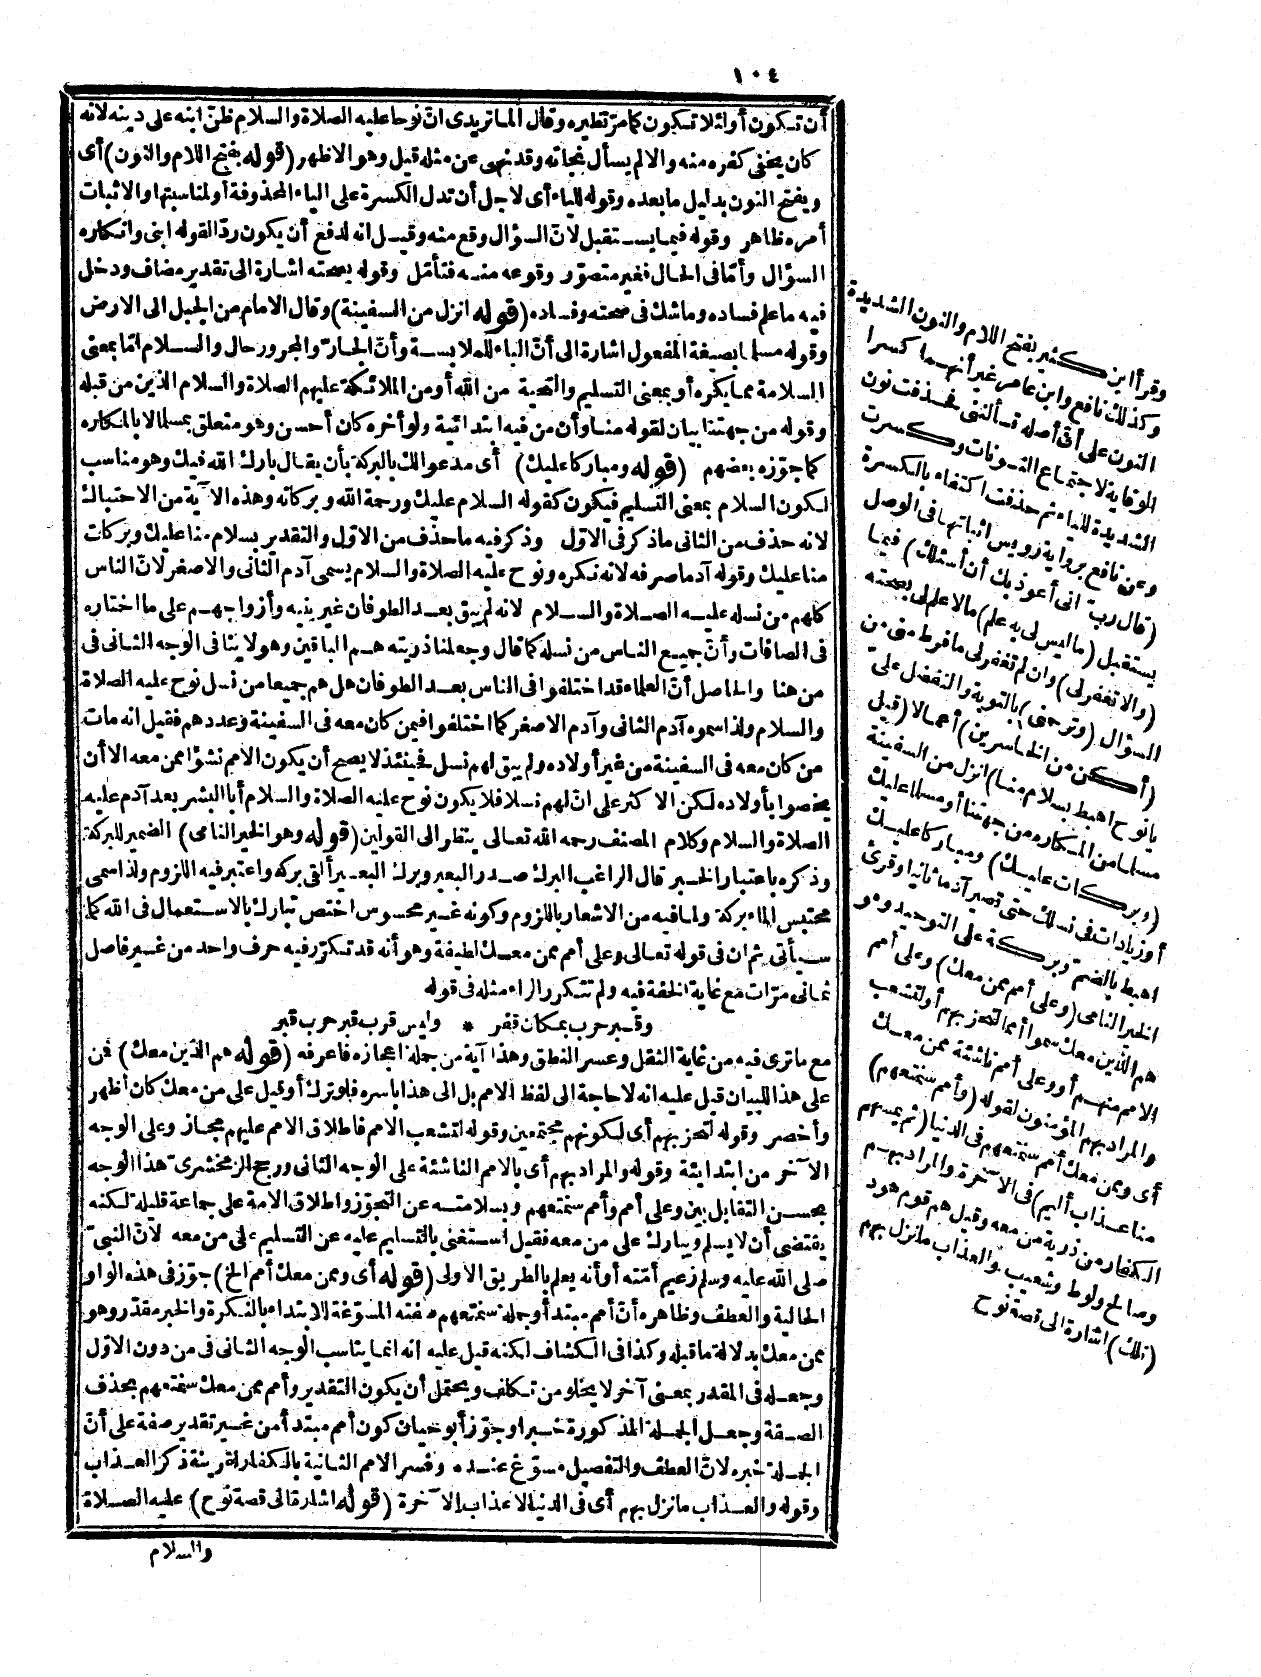 ١٠٤
أن تكون أو لئلا تكون كما مرّ نظيره وقال الماتريدى انّ نوحا عليه الصلاة والسلام ظنّ ابنه على دينه لانه
كان يخفى كفره منه والا لم يسأل نجاته وقد نهى عن مثله قيل وهو الاظهر (قوله بفتح اللام والنون) أى
وبفتح النون بدليل ما بعده وقوله للياء أى لاجل أن تدل الكسرة على الياء المحذوفة أو لمناسبتها والاثبات
أمره ظاهر وقوله فيما يستقبل لانّ السؤال وقع منه وقيل انه لدفع أن يكون ردّا لقوله ابنى وانكاره
السؤال وأمّا فى الحال فغير متصوّر وقوعه منه فتأمّل وقوله بصحته اشارة الى تقدير مضاف ودخل
فيه ما علم فساده وما شك فى صحته وفساده (قوله انزل من السفينة) وقال الامام من الجبل الى الارض
وقوله مسلما بصيغة المفعول اشارة الى أنّ الباء للملابسة وأنّ الجارّ والمجرور حال والسلام امّا بمعنى
السلامة مما يكره أو بمعنى التسليم والتحية من الله أو من الملائكة عليهم الصلاة والسلام الذين من قبله
وقوله من جهتنا بيان لقوله منا وأن من فيه ابتدائية ولو أخره كان أحسن وهو متعلق بمسلما لا بالمكاره
كما جوّزه بعضهم (قوله ومباركا عليك) أى مدعوا لك بالبركة بأن يقال بارك الله فيك وهو مناسب
لكون السلام بمعنى التسليم فيكون كقوله السلام عليك ورحمة الله وبركاته وهذه الآية من الاحتباك
لانه حذف من الثانى ما ذكر فى الاوّل وذكر فيه ما حذف من الاوّل والتقدير بسلام منا عليك وبركات
منا عليك وقوله آدما صرفه لانه نكره ونوح عليه الصلاة والسلام يسمى آدم الثانى والاصغر لانّ الناس
كلهم من نسله عليه الصلاة والسلام لانه لم يبق بعد الطوفان غير بنيه وأزواجهم على ما اختاره
فى الصافات وأنّ جميع الناس من نسله كما قال وجعلنا ذريته هم الباقين وهو لا ينافى الوجه الثانى فى
من هنا والحاصل أنّ العلماء قد اختلفوا فى الناس بعد الطوفان هل هم جميعا من نسل نوح عليه الصلاة
والسلام ولذا سموه آدم الثانى وآدم الاصغر كما اختلفوا فيمن كان معه فى السفينة وعددهم فقيل انه مات
من كان معه فى السفينة من غير أولاده ولم يبق لهم نسل فحينئذ لا يصح أن يكون الامم نشؤا ممن معه الا أن
يخصوا بأولاده لكن الاكثر على انّ لهم نسلا فلا يكون نوح عليه الصلاة والسلام أبا البشر بعد آدم عليه
الصلاة والسلام وكلام المصنف رحمه الله تعالى ينظر الى القولين (قوله وهو الخير النامى) الضمير للبركة
وذكره باعتبار الخبر قال الراغب البرك صدر البعير وبرك البعير ألقى بركه واعتبر فيه اللزوم ولذا سمى
محتبس الماء بركة ولما فيه من الاشعار باللزوم وكونه غير محسوس اختص تبارك بالاستعمال فى الله كما
سيأتى ثم ان فى قوله تعالى وعلى أمم ممن معك لطيفة وهو أنه قد تكرّر فيه حرف واحد من غير فاصل
ثمانى مرّات مع غاية الخفة فيه ولم تتكرر الراء مثله فى قوله
وقبر حرب بمكان قفر * وليس قرب قبر حرب قبر
مع ما ترى فيه من غاية الثقل وعسر النطق وهذا آية من جملة اعجازه فاعرفه (قوله هم الذين معك) فمن
على هذا للبيان قيل عليه انه لا حاجة الى لفظ الامم بل الى هذا باسره فلو ترك أو قيل على من معك كان أظهر
وأخصر وقوله لتحزبهم أى لكونهم مجتمعين وقوله لتشعب الامم فاطلاق الامم عليهم مجاز وعلى الوجه
الآخر من ابتدائية وقوله والمراد بهم أى بالامم الناشئة على الوجه الثانى ورجح الزمخشرىّ هذا الوجه
بحسن التقابل بين وعلى أمم وأمم سنمتعهم وبسلامته عن التجوّز واطلاق الامة على جماعة قليلة لكنه
يقتضى أن لا يسلم ويبارك على من معه فقيل استغنى بالتسليم عليه عن التسليم على من معه لانّ النبىّ
صلى الله عليه وسلم زعيم أمّته أو أنه يعلم بالطريق الاولى (قوله أى وممن معك أمم الخ) جوّز فى هذه الواو
الحالية والعطف وظاهره أنّ أمم مبتدأ وجملة سنمتعهم صفته المسوّغة للابتداء بالنكرة والخبر مقدّر وهو
ممن معك بدلالة ما قبله وكذا فى الكشاف لكنه قيل عليه انه انما يناسب الوجه الثانى فى من دون الاوّل
وجعله فى المقدر بمعنى آخر لا يخلو من تكلف ويحتمل أن يكون التقدير وأمم ممن معك سنمتعهم بحذف
الصفة وجعل الجملة المذكورة خبرا وجوّز أبو حيان كون أمم مبتدأ من غير تقدير صفة على أنّ
الجملة خبره لانّ العطف والتفصيل مسوّغ عنده وفسر الامم الثانية بالكفار لقرينة ذكر العذاب
وقوله والعذاب ما نزل بهم أى فى الدنيا لا عذاب الآخرة (قوله اشارة الى قصة نوح) عليه الصلاة
والسلام
وقرأ ابن كثير بفتح اللام والنون الشديدة
وكذلك نافع وابن عامر غير أنهما كسرا
النون على أنّ أصله تسألننى فحذفت نون
الوقاية لاجتماع النونات وكسرت
الشديدة للياء ثم حذفت اكتفاء بالكسرة
وعن نافع برواية رويس اثباتها فى الوصل
(قال رب انى أعوذ بك أن أسئلك) فيما
يستقبل (ما ليس لى به علم) ما لا علم لى بصحته
(والا تغفر لى) وان لم تغفر لى ما فرط منى من
السؤال (وترحمنى) بالتوبة والتفضل علىّ
(أكن من الخاسرين) أعمالا (قيل
يا نوح اهبط بسلام منا) انزل من السفينة
مسلما من المكاره من جهتنا أو مسلما عليك
(وبركات عليك) ومباركا عليك
أو زيادات فى نسلك حتى تصير آدما ثانيا وقرئ
اهبط بالضم وبركة على التوحيد وهو
الخير النامى (وعلى أمم ممن معك) وعلى أمم
هم الذين معك سموا أمما لتحزبهم أو لتشعب
الامم منهم أو وعلى أمم ناشئة ممن معك
والمراد بهم المؤمنون لقوله (وأمم سنمتعهم)
أى وممن معك أمم سنمتعهم فى الدنيا (ثم يمسهم
منا عذاب أليم) فى الآخرة والمراد بهم
الكفار من ذرية من معه وقيل هم قوم هود
وصالح ولوط وشعيب والعذاب ما نزل بهم
(تلك) اشارة الى قصة نوح